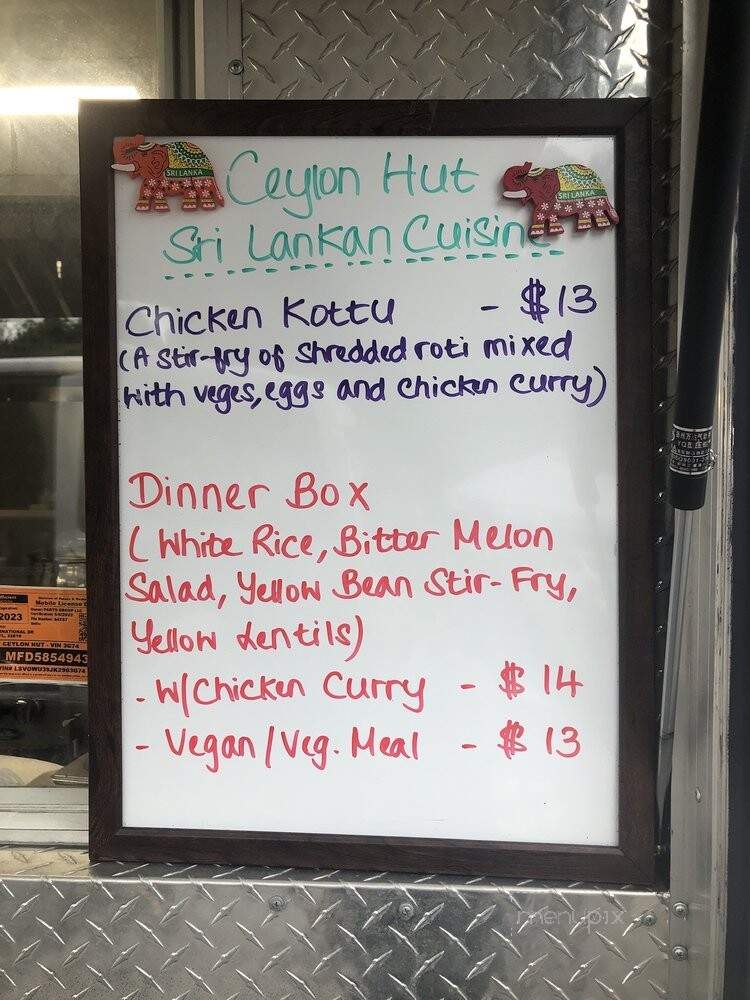 SRI LANKA
SRI LANKA
Ceylon Hut
Sri Lankan Cuisine
Chicken Kottu - $13
(A stir-fry of shredded roti mixed
with veges, eggs and chicken curry)
Dinner Box
(White Rice, Bitter Melon
Salad, Yellow Bean Stir-Fry,
Yellow Lentils)
- W/Chicken Curry - $14
- Vegan/Veg. Meal - $13
Mobile License
2023
CEYLON HUT - VIN 3G74
MFD5854943
menupix